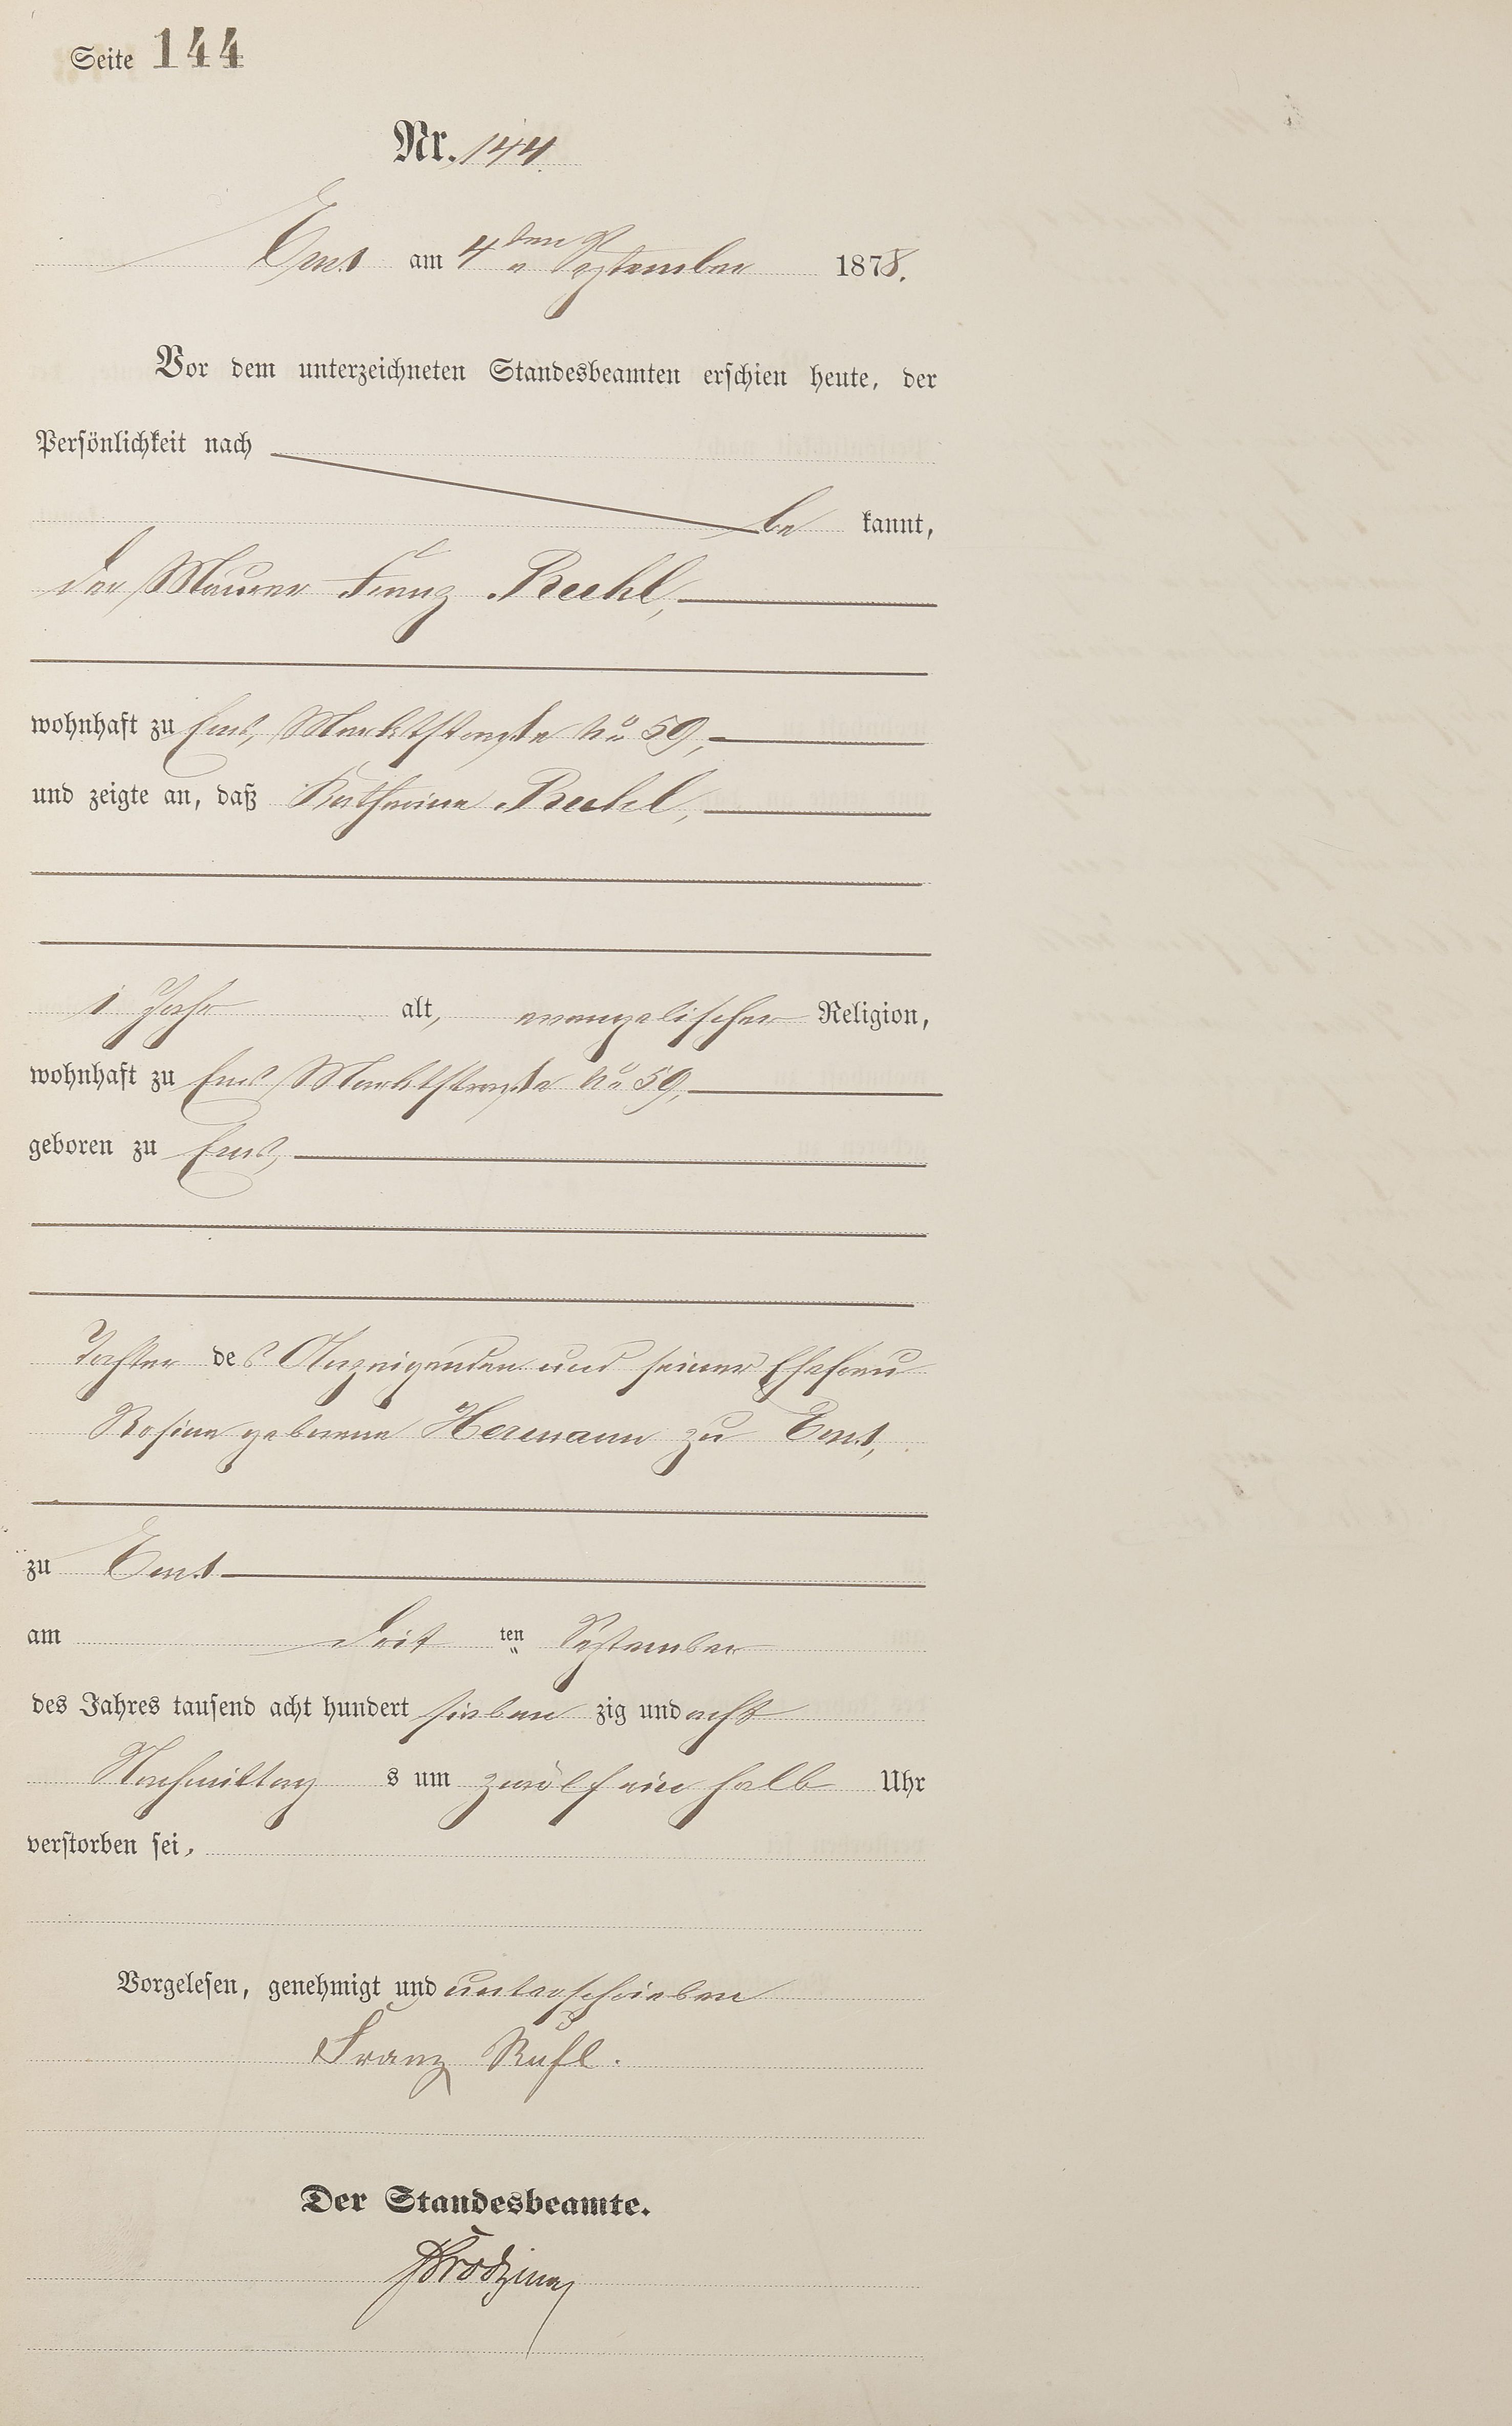 Seite 144
Nr. 144.
Ems am 4ten September 1878.
Vor dem unterzeichneten Standesbeamten erschien heute, der
Persönlichkeit nach
be kannt,
der Maurer Franz Ruhl,
wohnhaft zu Ems, Marktstraße No 59,
und zeigte an, daß Katharina Ruhl,
1 Jahr alt, evangelischer Religion,
wohnhaft zu Ems Marktstraße No 59,
geboren zu Ems,
Tochter des Anzeigenden und seiner Ehefrau
Rosina geborene Hermann zu Ems,
zu Ems
am dritten September
des Jahres tausend acht hundert sieben zig und acht
Nachmittags um zwölf ein halb Uhr
verstorben sei,
Vorgelesen, genehmigt und unterschrieben
Franz Ruhl.
Der Standesbeamte.